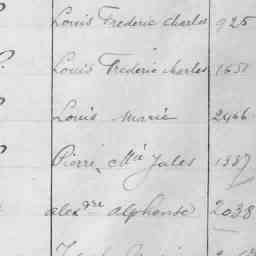 Louis Frederic Charles 925
Louis Frederic Charles 1651
Louis Marie 2466
Pierre Mie Jules 1387
alexdre alphonse 2038